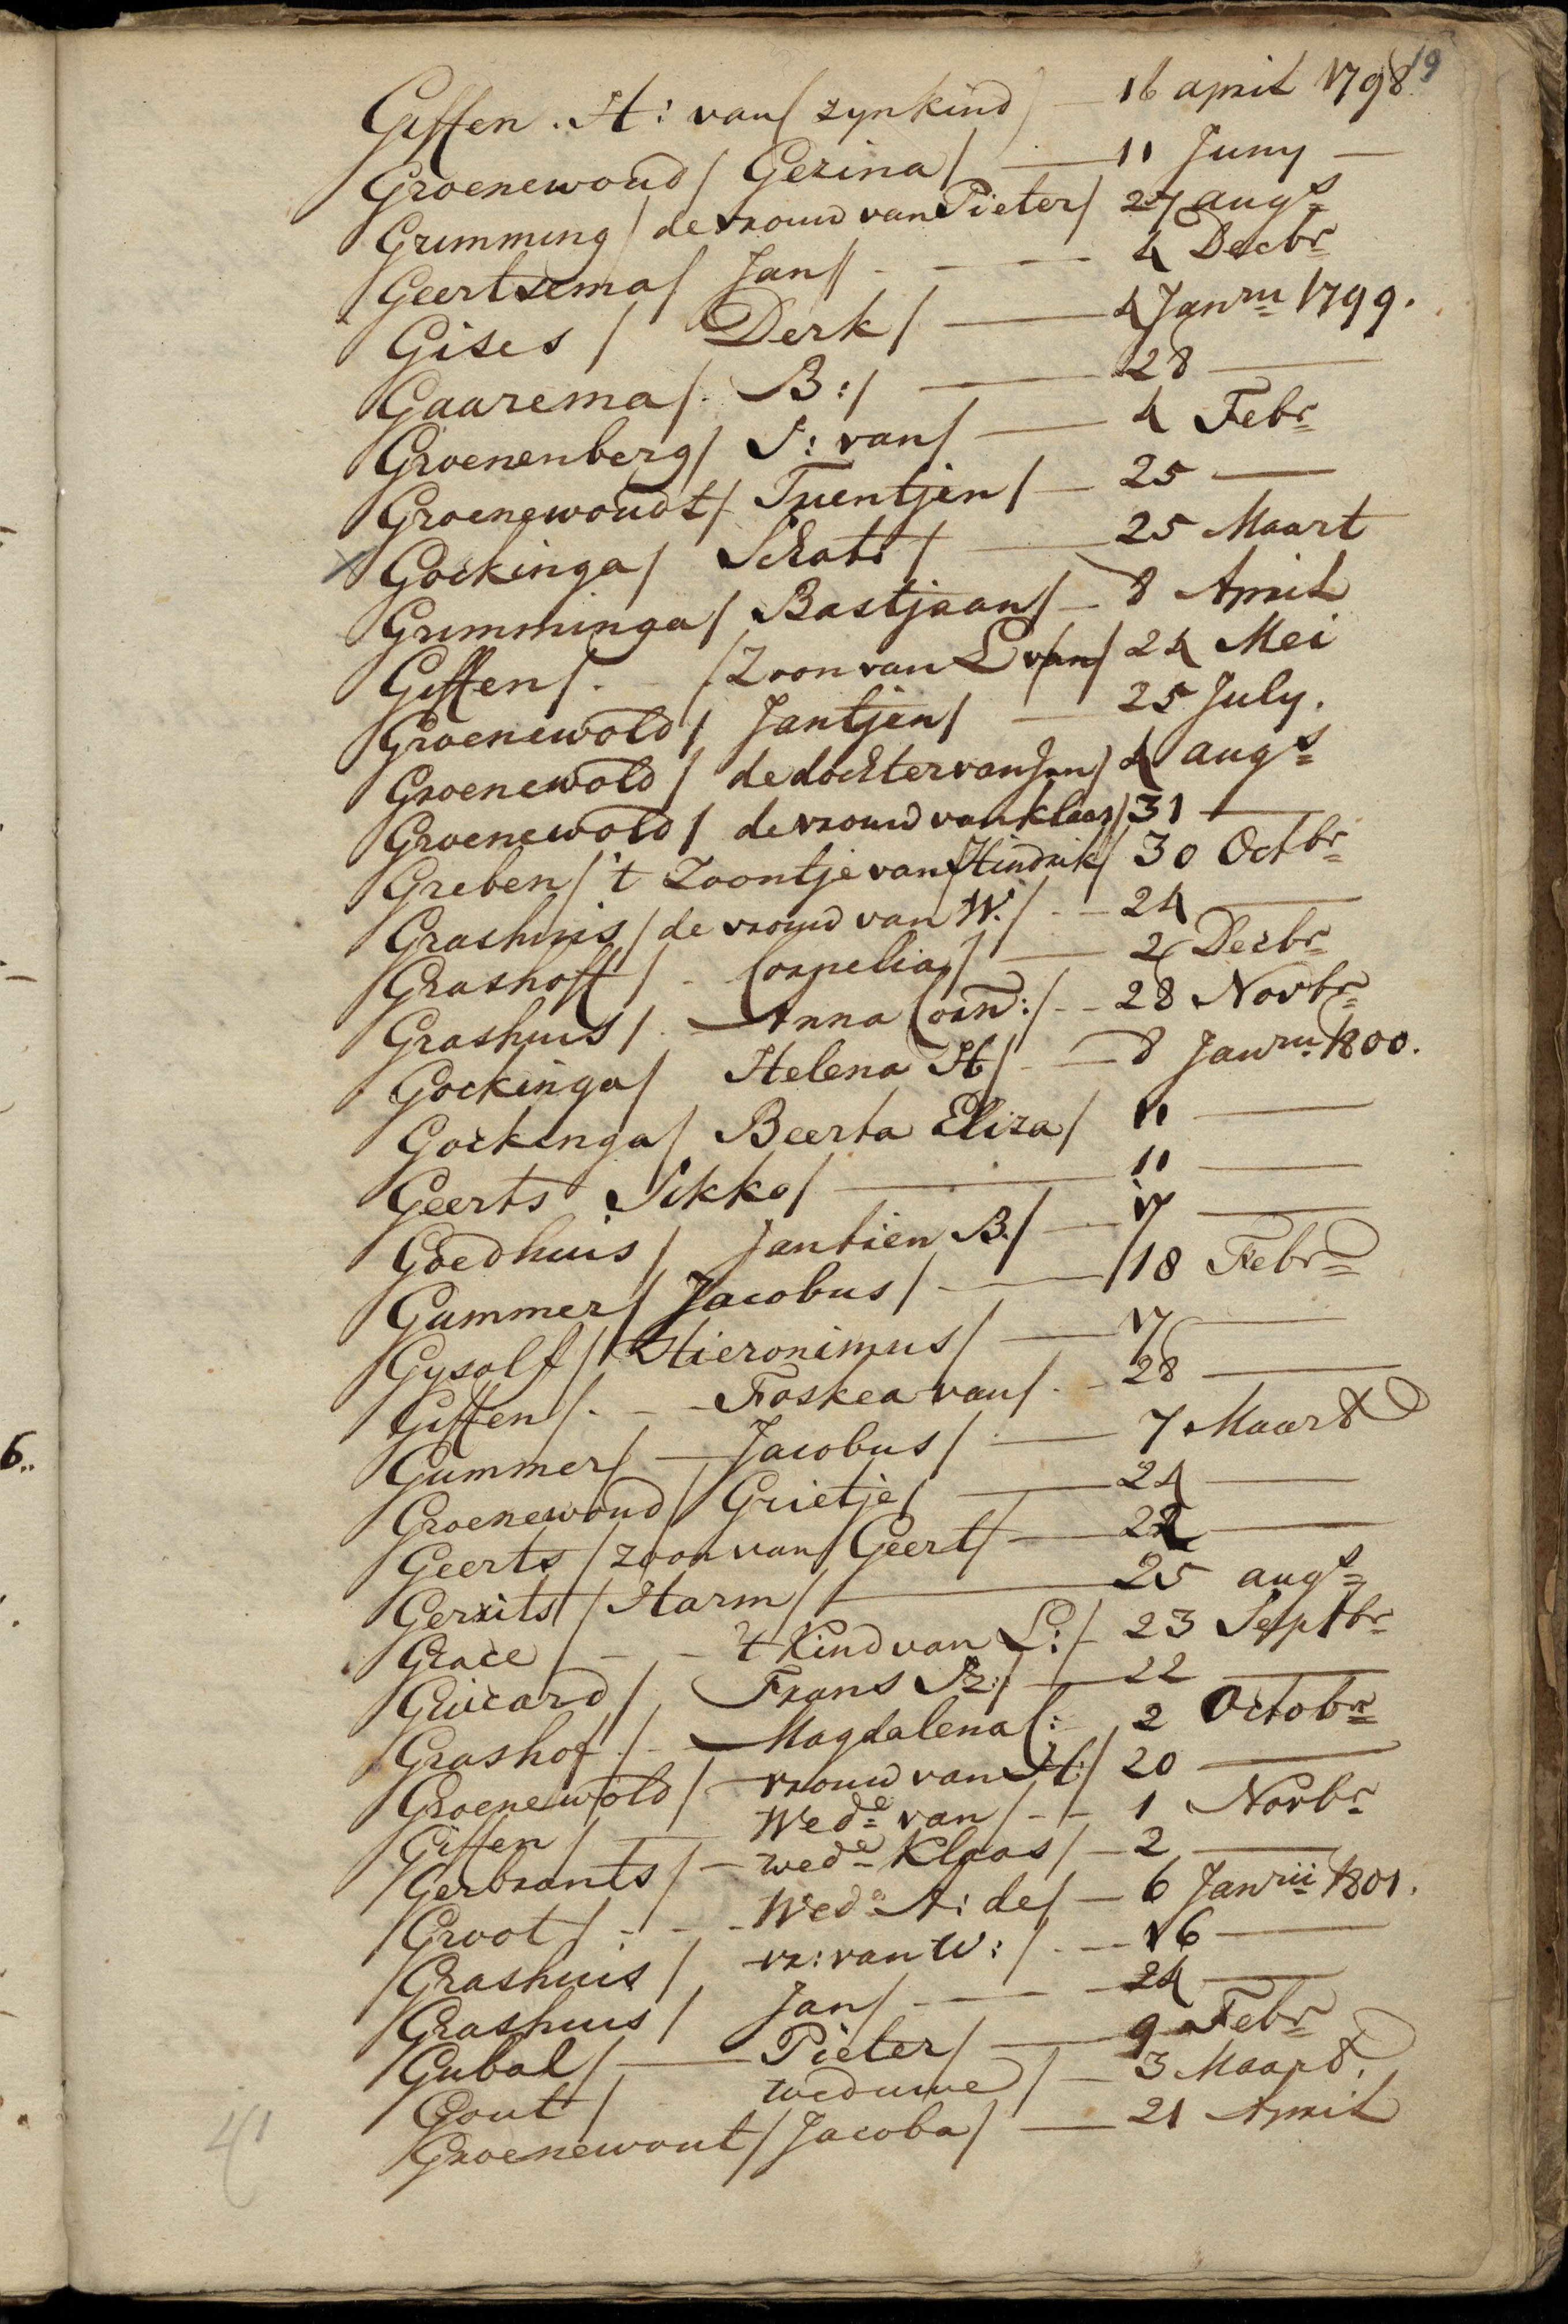 19
Giffen . H : van / zyn kind / — 16 april 1798
Groenewoud / Gezina / — 11 Juny —
Grimming / de vrouw van Pieter / 27 augs
Geertsema / Jan // - — 4 Decbr
Gises / Derk / — 4 Janru 1799.
Gaarema /. B : / — 28 —
Groenenberg / S : van / — 4 Febr
Groenewoudt / Trientjen / — 25 —
x Gockinga / Schato / — 25 Maart
Grimminga / Bastjaan / — 8 April
Giffen /. / Zoon van L van / 24 Mei
Groenewold / Jantjen / — 25 July.
Groenewold / de dochter van Jan / 4 augs
Groenewold / de vrouw van Klaas / 31 —
Greben / 't Zoontje van Hindrik / 30 Octbr
Grashuis / de vrouw van W. / - — 24 —
Grashoff / - Cornelia / — 2 Decbr
Grashuis /. Anna Corn : / - - 28 Novbr
Gockinga / Helena H / - — 8 Janru 1800.
Gockinga / Beerta Eliza / 11 —
Geerts Sikko / — 11 —
Goedhuis / Jantien B. / — 17 —
Gummer / Jacobus / — 18 Febr
Gysolf / Hieronimus / — 17 —
Giffen /. - - Foskea van /. - 28 —
Gummer / — Jacobus / — 7 Maart
Groenewoud / Grietje / — 24 —
Geerts / zoon van / Geert / — 22 —
Gerrits / Harm / — 25 augs
Grace / - - 't Kind van L : / - 23 Septbr
Guicard / Frans Sz : / — 22 —
Grashof . / - Magdalena C : - 2 Octobr
Groenewold / vrouw van H : / 20 —
Giffen / — Wede van / - - 1 Novbr
Gerbrants / — wede Klaas / — 2 —
Groot / - - - Wede A : de / — 6 Janrii 1801.
Grashuis / vr : van W : /. — 16 —
Grashuis / Jan / - — - 24 —
Gubal / — Pieter / — 9 Febr
Gout / weduwe / — 3 Maart.
Groenewout / Jacoba / — 21 April
41
6..